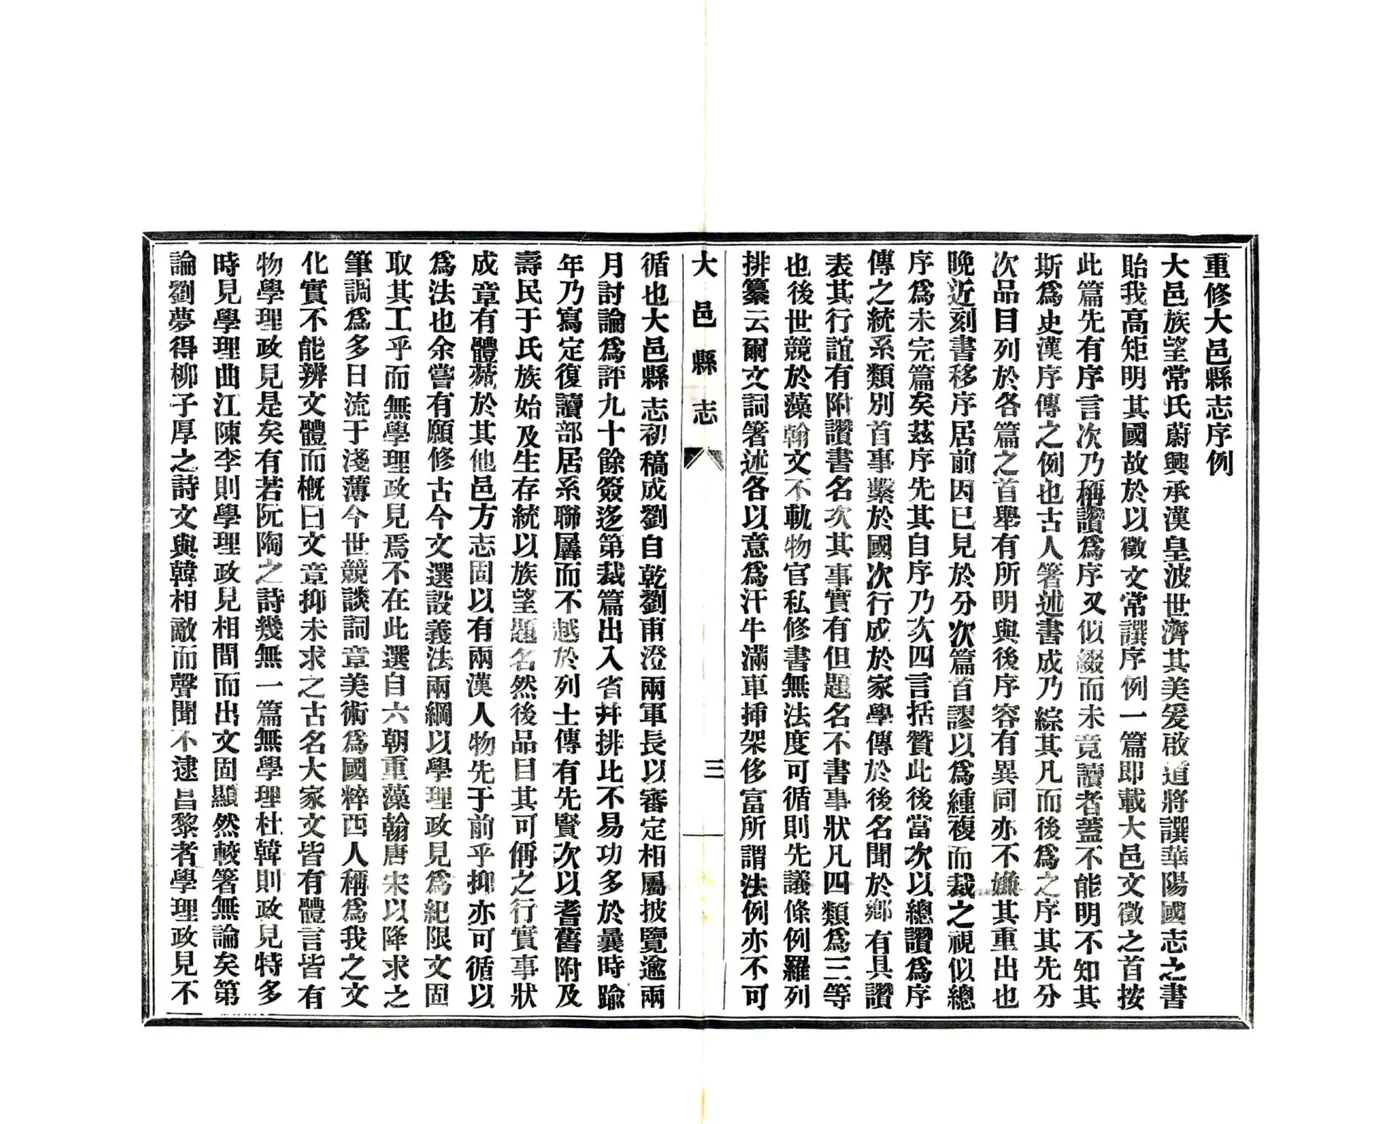 重修大邑縣志序例
大邑族望常氏蔚興承漢皇波世濟其美爰啟道將譔華陽國志之書
貽我高矩明其國故於以徵文常譔序例一篇即載大邑文徵之首按
此篇先有序言次乃稱讚爲序又似綴而未竟讀者蓋不能明不知其
斯爲史漢序傳之例也古人箸述書成乃綜其凡而後爲之序其先分
次品目列於各篇之首舉有所明與後序容有異同亦不嫌其重出也
晚近刻書移序居前因已見於分次篇首謬以爲緟複而裁之視似總
序爲未完篇矣茲序先其自序乃次四言括贊此後當次以總讚爲序
傳之統系類別首事繫於國次行成於家學傳於後名聞於鄉有具讚
表其行誼有附讚書名次其事實有但題名不書事狀凡四類爲三等
也後世競於藻翰文不軌物官私修書無法度可循則先議條例羅列
排纂云爾文詞箸述各以意爲汗牛滿車揷架侈富所謂法例亦不可
大邑縣志
三
循也大邑縣志初稿成劉自乾劉甫澄兩軍長以審定相屬披覽逾兩
月討論爲評九十餘簽迻第裁篇出入省幷排比不易功多於曩時踰
年乃寫定復讀部居系聯屬而不越於列士傳有先賢次以耆舊附及
壽民于氏族始及生存統以族望題名然後品目其可偁之行實事狀
成章有體蓺於其他邑方志固以有兩漢人物先于前乎抑亦可循以
爲法也余嘗有願修古今文選設義法兩綱以學理政見爲紀限文固
取其工乎而無學理政見焉不在此選自六朝重藻翰唐宋以降求之
筆調爲多日流于淺薄今世競談詞章美術爲國粹西人稱爲我之文
化實不能辨文體而概曰文章抑未求之古名大家文皆有體言皆有
物學理政見是矣有若阮陶之詩幾無一篇無學理杜韓則政見特多
時見學理曲江陳李則學理政見相間而出文固顯然較箸無論矣第
論劉夢得柳子厚之詩文與韓相敵而聲聞不逮昌黎者學理政見不